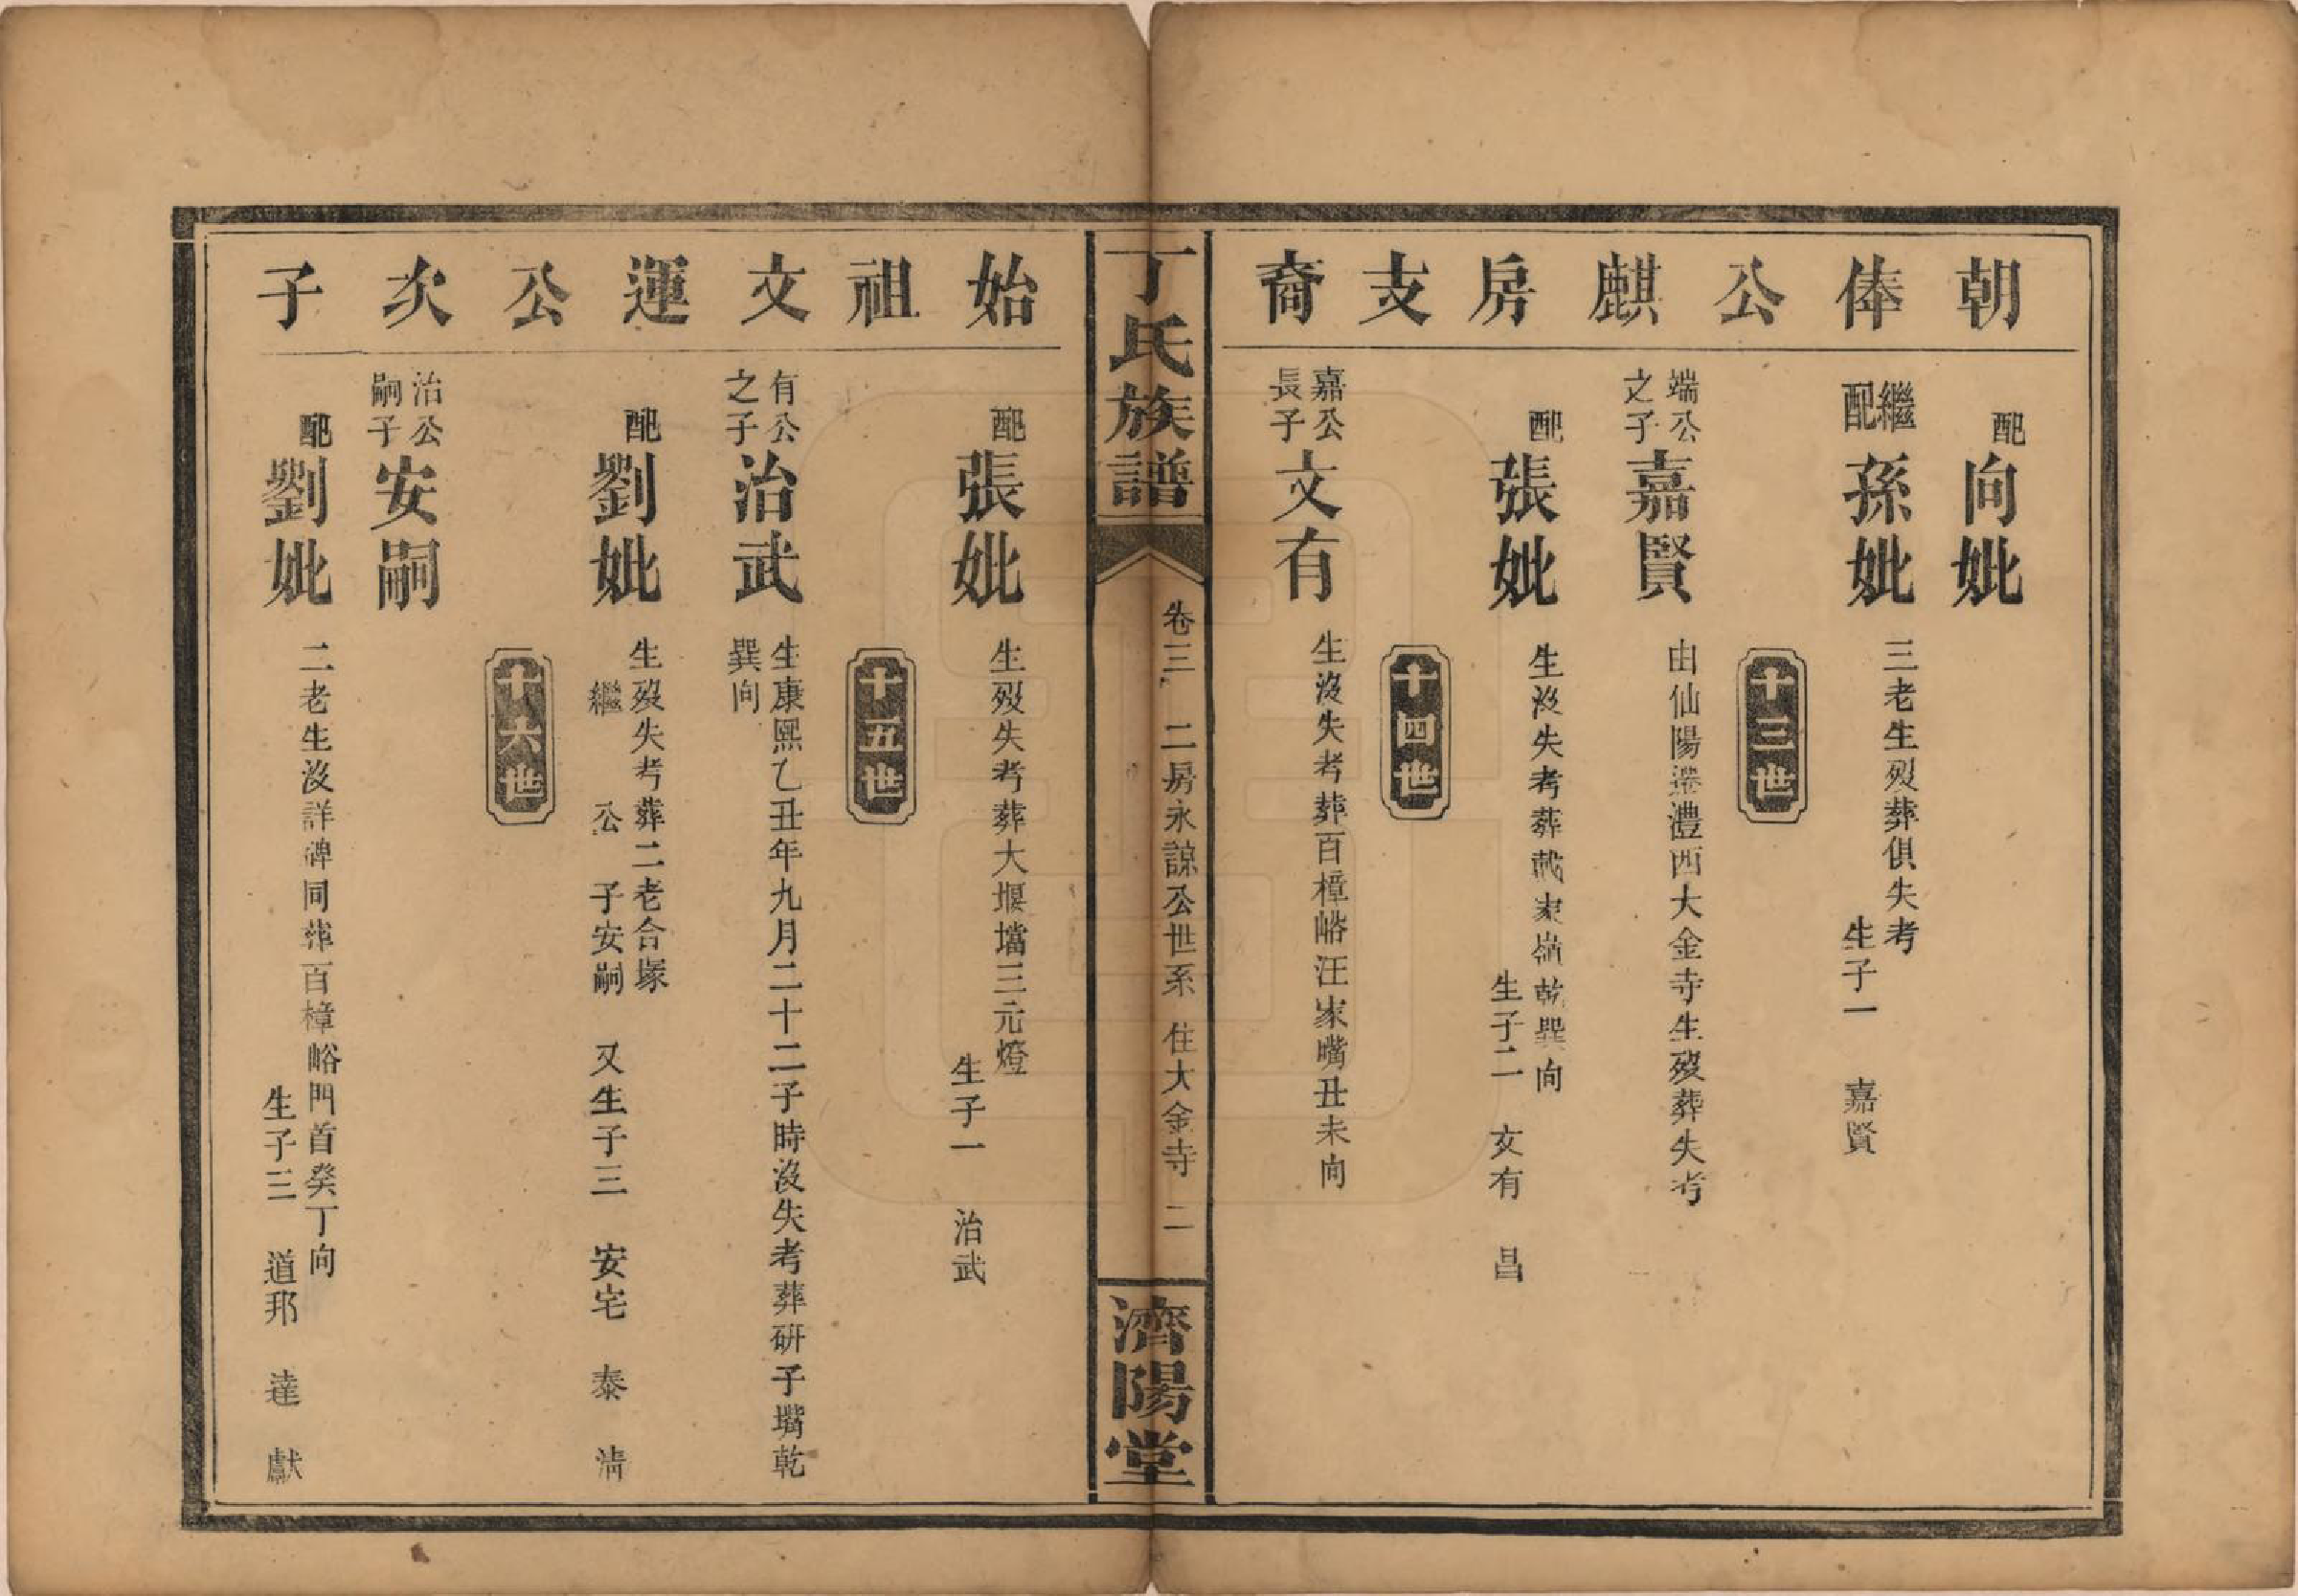 朝俸公麒房支裔
配 向妣
繼配 孫妣 三老生歿葬俱失考
生子一 嘉賢
十三世
端公之子 嘉賢 由仙陽遷澧西大金寺生歿葬失考
配 張妣 生沒失考葬戲家嶺乾巽向
生子二 文有 昌
十四世
嘉公長子 文有 生沒失考葬百樟峪汪家嘴丑未向
丁氏族譜 卷三 二房永諒公世系 住大金寺 二 濟陽堂
始祖文運公次子
配 張妣 生歿失考葬大堰壋三元燈
生子一 治武
十五世
有公之子 治武 生康熙乙丑年九月二十二子時沒失考葬研子嘴乾
巽向
配 劉妣 生歿失考葬二老合塚
繼 公 子安嗣 又生子三 安宅 泰 清
十六世
治公嗣子 安嗣
配 劉妣 二老生沒詳碑同葬百樟峪門首癸丁向
生子三 道邦 達 獻